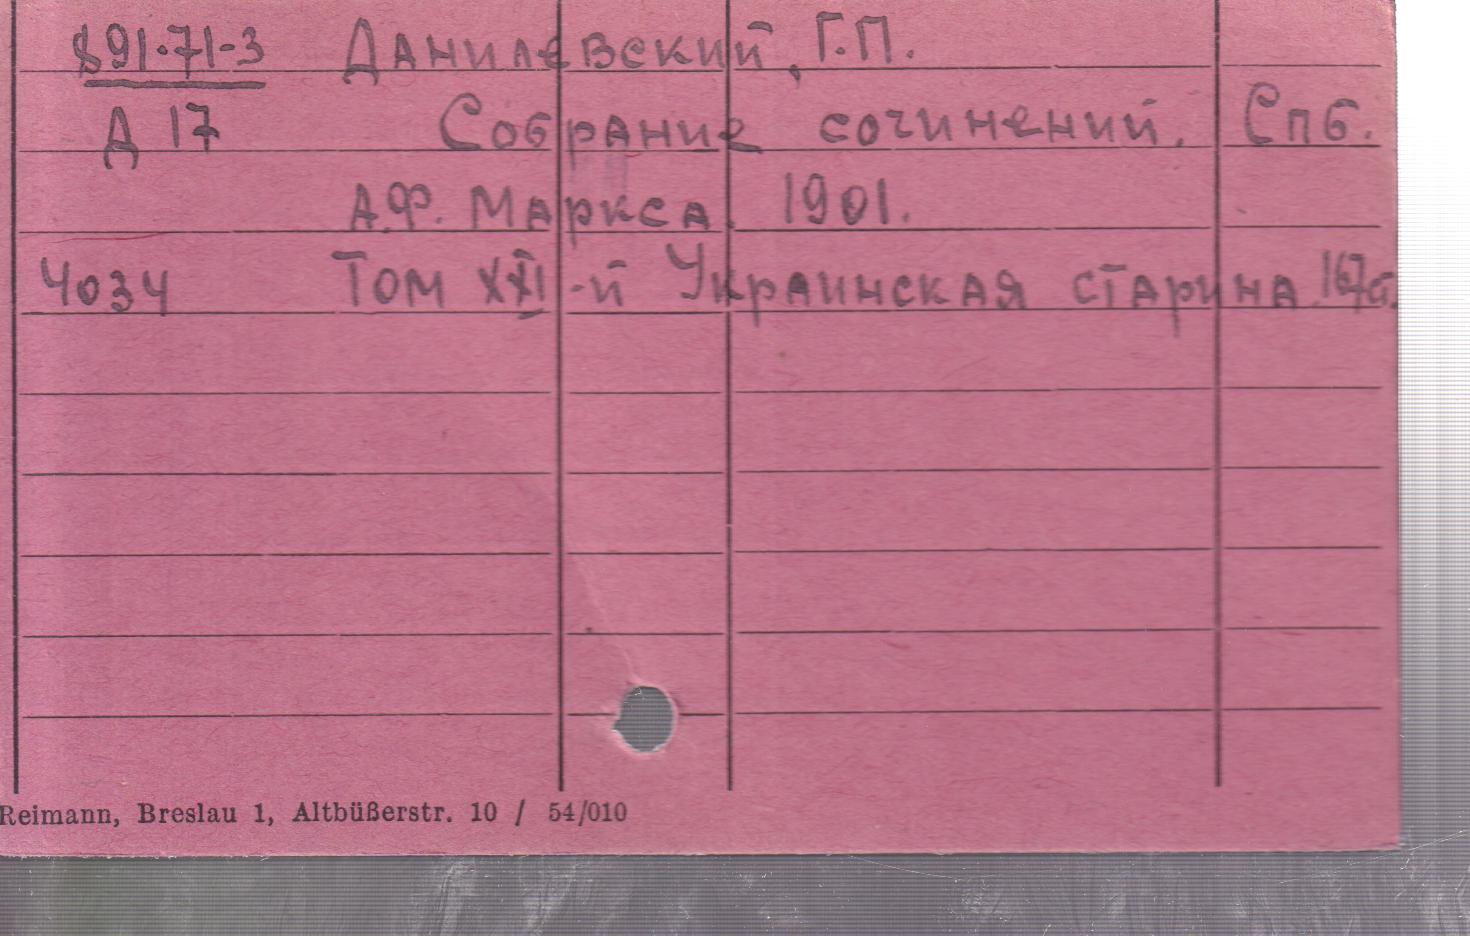 891.71-3 Данилевский, Г.П.
Д 17 Собрание сочинений. Спб.
А.Ф. Маркса. 1901.
4034 Том XXI-й Украинская старина 167с.
Reimann, Breslau 1, Altbüßerstr. 10 / 54/010